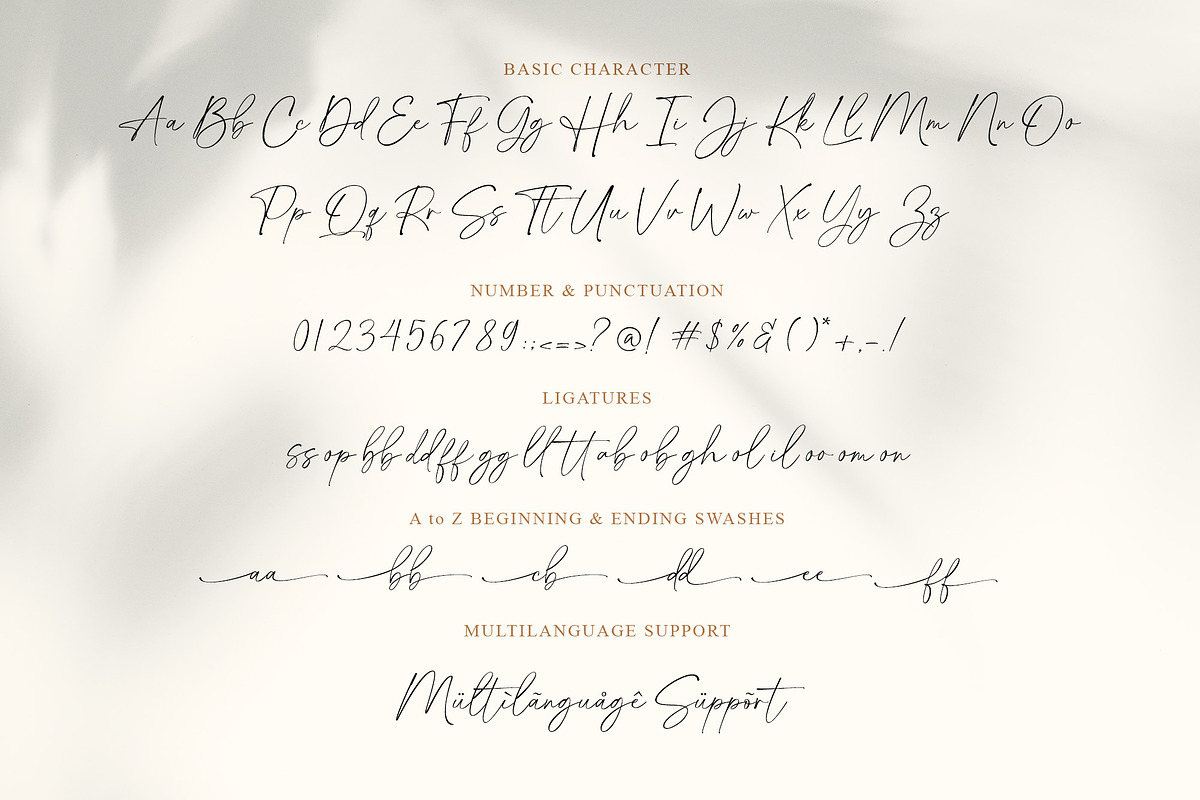 BASIC CHARACTER
Aa Bb Cc Dd Ee Ff Gg Hh Ii Jj Kk Ll Mm Nn Oo
Pp Qq Rr Ss Tt Uu Vv Ww Xx Yy Zz
NUMBER & PUNCTUATION
0123456789:;<=>?@! #$%&()*+,-./
LIGATURES
ss op bb dd ff gg ll tt ab ob gh ol il oo om on
A to Z BEGINNING & ENDING SWASHES
aa bb cb dd ee ff
MULTILANGUAGE SUPPORT
Mültìlãnguågê Süppõrt